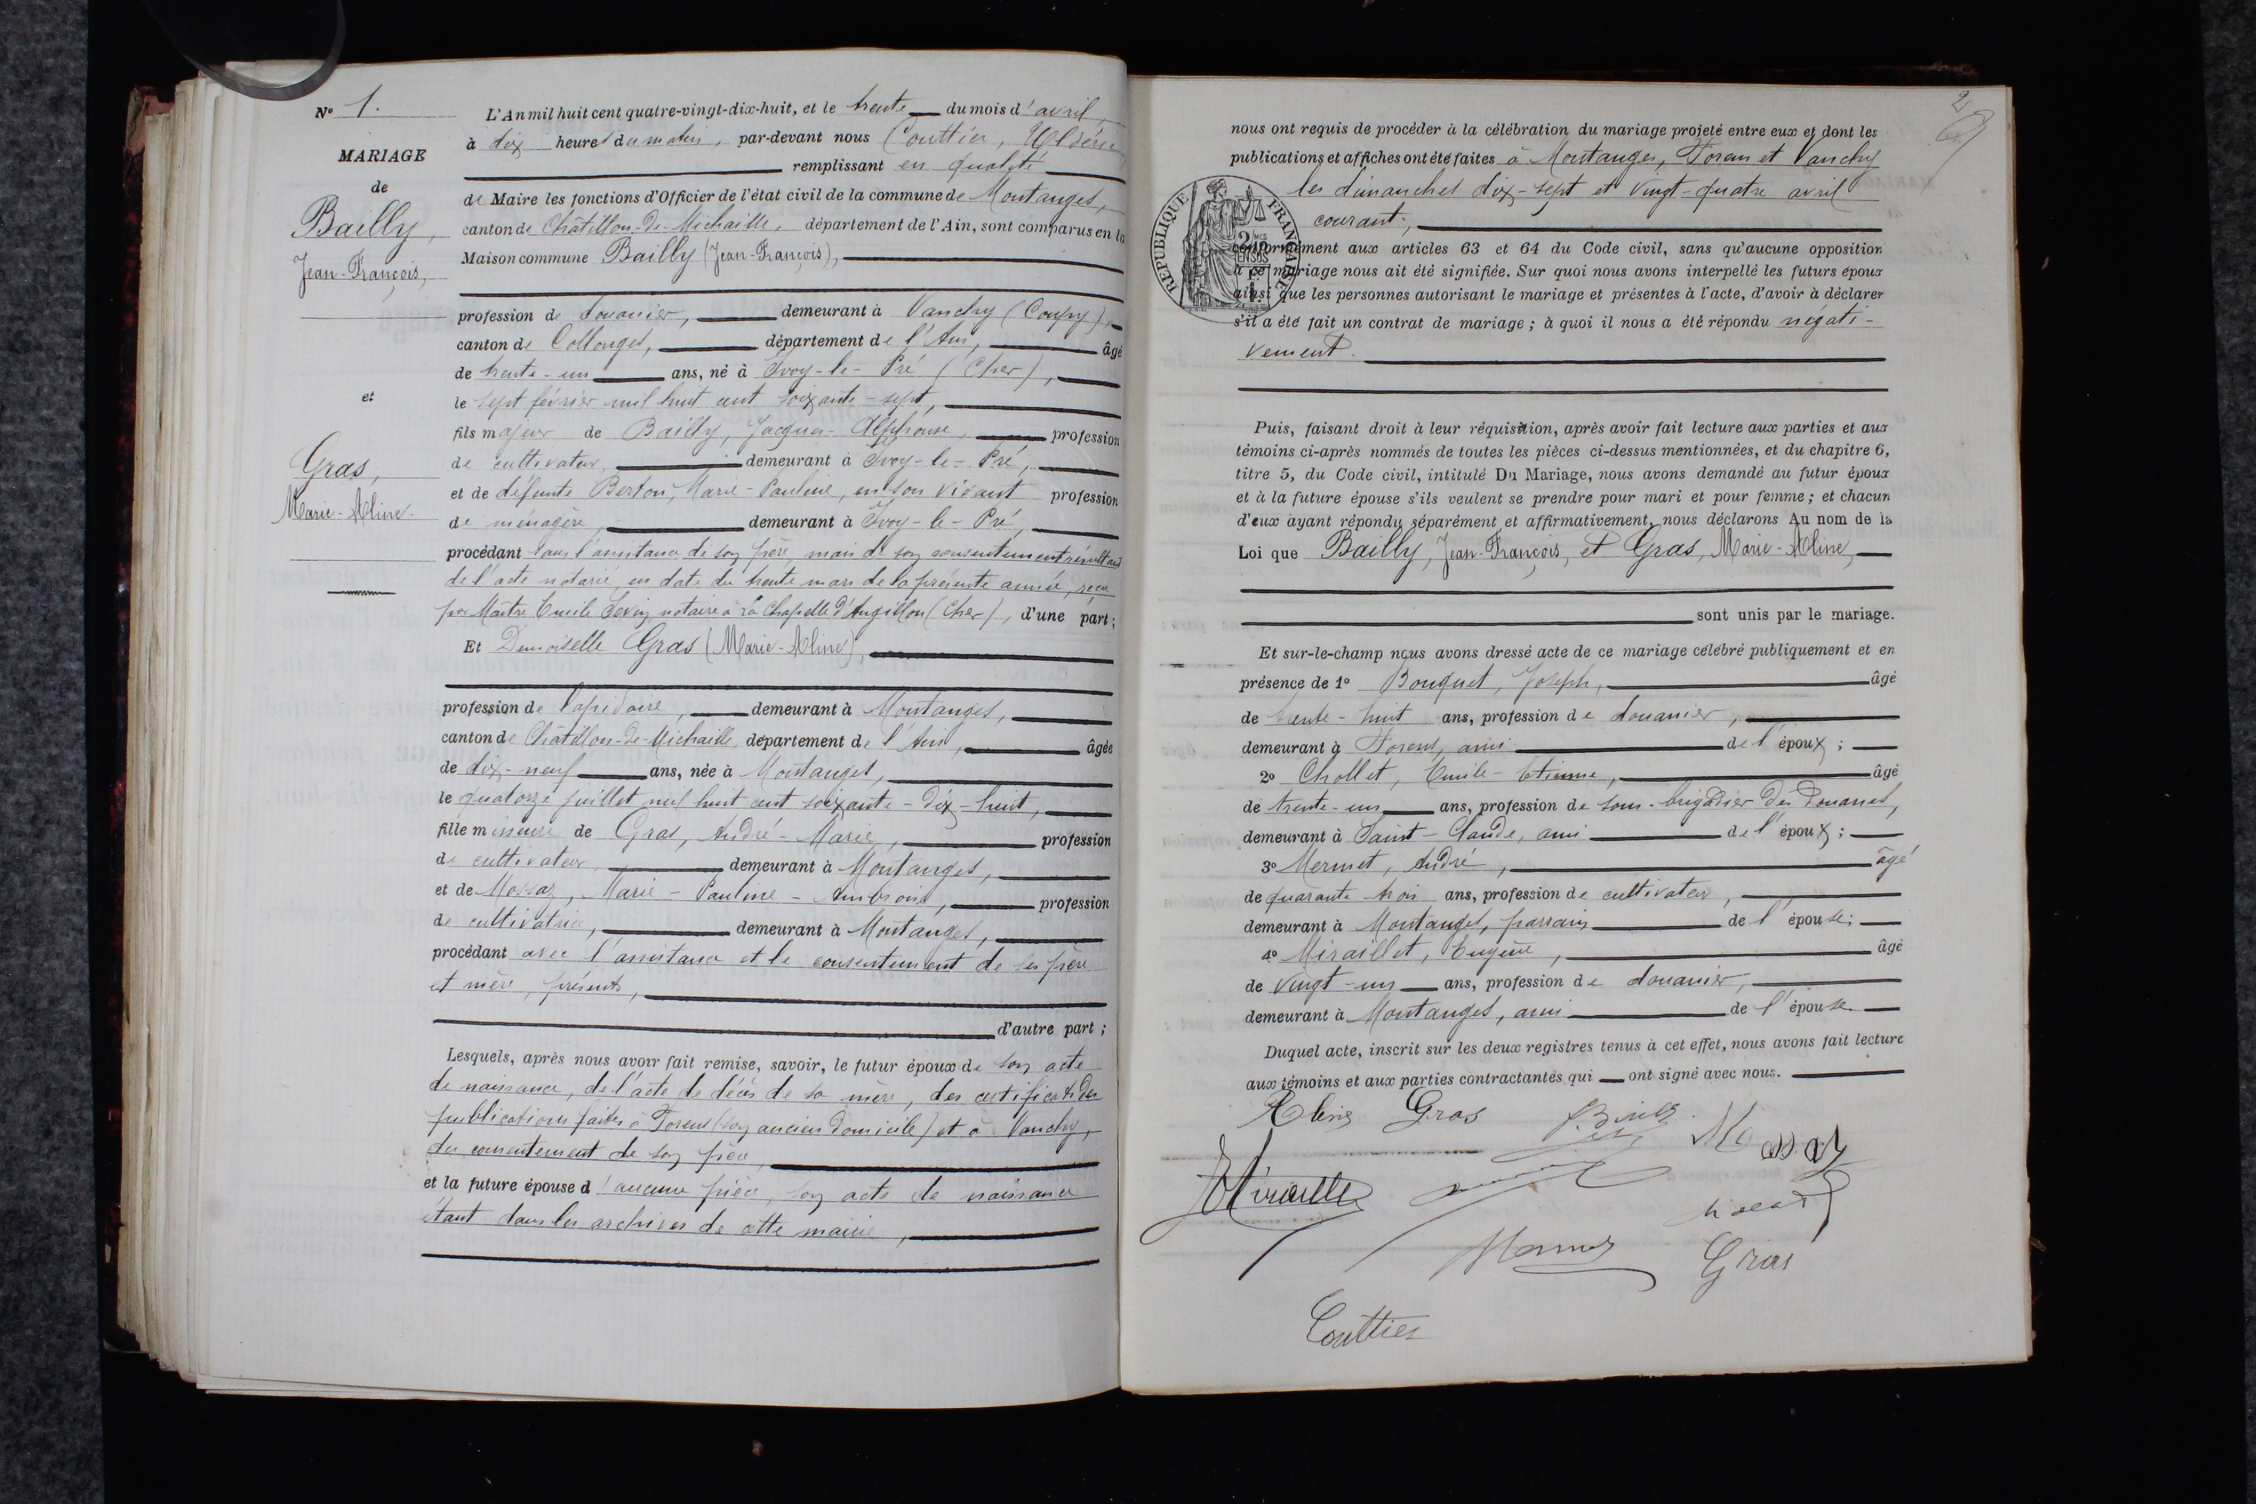 N° 1.
MARIAGE
de
Bailly,
Jean-François,
et
Gras,
Marie-Aline.
L'An mil huit cent quatre-vingt-dix-huit, et le trente du mois d'avril,
à dix heures du matin, par-devant nous Couttier,
remplissant en qualité
de Maire les fonctions d'Officier de l'état civil de la commune de Montanges,
canton de Châtillon-de-Michaille, département de l'Ain, sont comparus en la
Maison commune Bailly (Jean-François),
profession de douanier, demeurant à Vanchy (Coupy),
canton de Collonges, département de l'Ain, âgé
de trente-un ans, né à Ivoy-le-Pré (Cher),
le sept février mil huit cent soixante-sept,
fils majeur de Bailly, Jacques-Alphonse, profession
de cultivateur, demeurant à Ivoy-le-Pré,
et de défunte Berton, Marie-Pauline, en son vivant profession
de ménagère, demeurant à Ivoy-le-Pré,
procédant sans l'assistance de son père mais de son consentement résultant
de l'acte notarié, en date du trente mars de la présente année, reçu
par Maître Emile notaire à la Chapelle d'Angillon (Cher), d'une part;
Et Demoiselle Gras (Marie-Aline),
profession de lapidaire, demeurant à Montanges,
canton de Châtillon-de-Michaille département de l'Ain, âgée
de dix-neuf ans, née à Montanges,
le quatorze juillet mil huit cent soixante-dix-huit,
fille mineure de Gras, André-Marie, profession
de cultivateur, demeurant à Montanges,
et de Mossaz, Marie-Pauline-Ambroise, profession
de cultivatrice, demeurant à Montanges,
procédant avec l'assistance et le consentement de ses père
et mère, présents,
d'autre part;
Lesquels, après nous avoir fait remise, savoir, le futur époux de son acte
de naissance, de l'acte de décès de sa mère, des certificats des
publications faites à Forens (son ancien domicile) et à Vanchy,
du consentement de son père,
et la future épouse d'aucune pièce, son acte de naissance
étant dans les archives de cette mairie,
2
nous ont requis de procéder à la célébration du mariage projeté entre eux et dont les
publications et affiches ont été faites à Montanges, Forens et Vanchy
les dimanches dix-sept et vingt-quatre avril
courant;
RÉPUBLIQUE FRANÇAISE
conformément aux articles 63 et 64 du Code civil, sans qu'aucune opposition
à ce mariage nous ait été signifiée. Sur quoi nous avons interpellé les futurs époux
ainsi que les personnes autorisant le mariage et présentes à l'acte, d'avoir à déclarer
s'il a été fait un contrat de mariage; à quoi il nous a été répondu négati-
vement.
Puis, faisant droit à leur réquisition, après avoir fait lecture aux parties et aux
témoins ci-après nommés de toutes les pièces ci-dessus mentionnées, et du chapitre 6,
titre 5, du Code civil, intitulé Du Mariage, nous avons demandé au futur époux
et à la future épouse s'ils veulent se prendre pour mari et pour femme; et chacun
d'eux ayant répondu séparément et affirmativement, nous déclarons Au nom de la
Loi que Bailly, Jean-François, et Gras, Marie-Aline,
sont unis par le mariage.
Et sur-le-champ nous avons dressé acte de ce mariage célébré publiquement et en
présence de 1° Bouquet, Joseph, âgé
de trente-huit ans, profession de douanier,
demeurant à Forens, ami de l'époux;
2° Chollet, Emile-Etienne, âgé
de trente-un ans, profession de sous-brigadier des Douanes,
demeurant à Saint-Claude, ami de l'époux;
3° Mermet, André, âgé
de quarante trois ans, profession de cultivateur,
demeurant à Montanges, parrain de l'épouse;
4° Miraillet, Eugène, âgé
de vingt-un ans, profession de douanier,
demeurant à Montanges, ami de l'épouse
Duquel acte, inscrit sur les deux registres tenus à cet effet, nous avons fait lecture
aux témoins et aux parties contractantes qui ont signé avec nous.
Aline Gras
Mossaz
Gras
Couttier